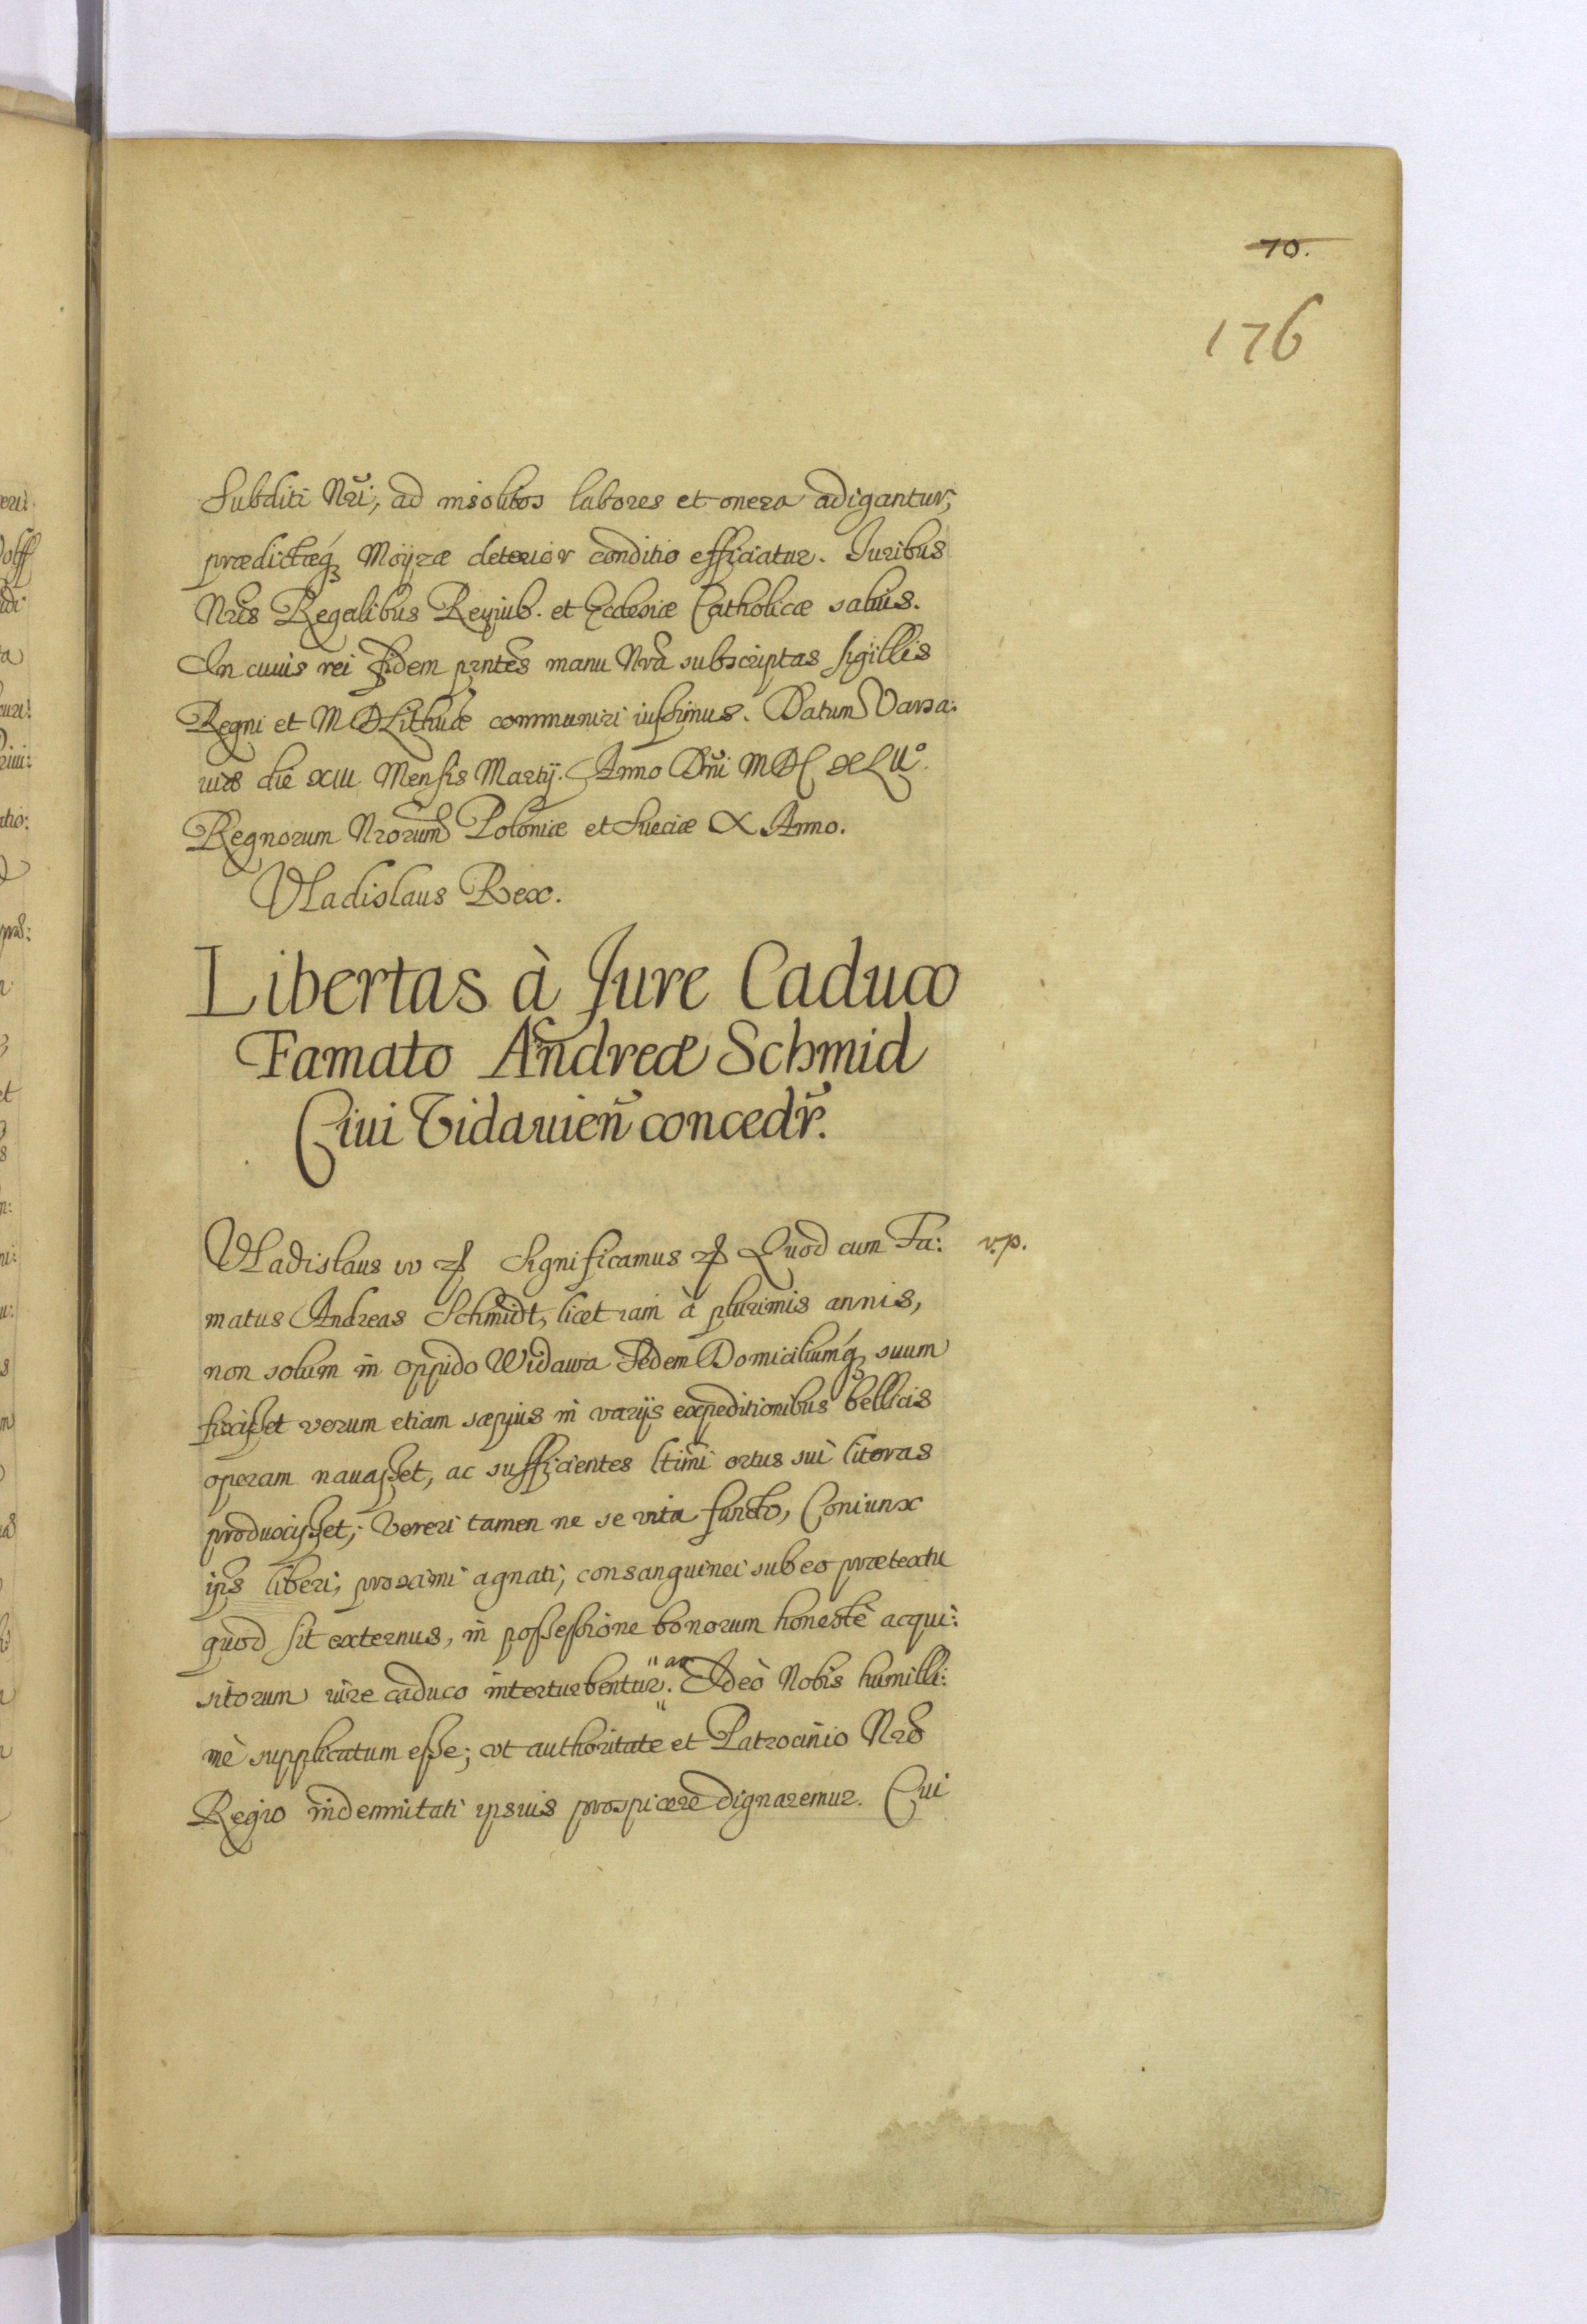 70.
176
Subditi Nr̃i, ad insolitos labores et onera adigantur,
prædictæq́ꝫ Moÿzæ deterior conditio efficiatur. Juribus
Nr̃is Regalibus Reipub. et Ecclesiæ Catholicæ saluis.
In cuius rei fidem pr̃ntes manu Nr̃a subscriptas sigillis
Regni et M D Lithuæ communiri iussimus. Datum Varsa:
uiæ die XIII Mensis Martij. Anno Dñi MDC XLIIº.
Regnorum Nr̃orum Poloniæ et Sueciæ X Anno.
Vladislaus Rex.
Libertas à Jure Caduco
Famato Andreæ Schmid
Ciui Vidauieñ concedr̃.
Vladislaus IV ꝛc Significamus ꝛc Quod cum Fa: v.p.
matus Andreas Schmidt, licet iam à plurimis annis,
non solum in oppido Widawa Sedem Domiciliumq́ꝫ suum
fixisset verum etiam sæpius in varijs expeditionibus bellicis
operam nauasset, ac sufficientes ltimi ortus sui literas
produxisset; Vereri tamen ne se vita functo, Coniunx
ip̃s liberi, proximi agnati, consanguinei sub eo prætextu
quod sit externus, in possessione bonorum honestè acqui:
sitorum iure caduco interturbentur. " an " Ideò Nobis humilli:
mè supplicatum esse; vt authoritate et Patrocinio Nr̃o
Regio indemnitati ipsius prospicere dignaremur. Cui